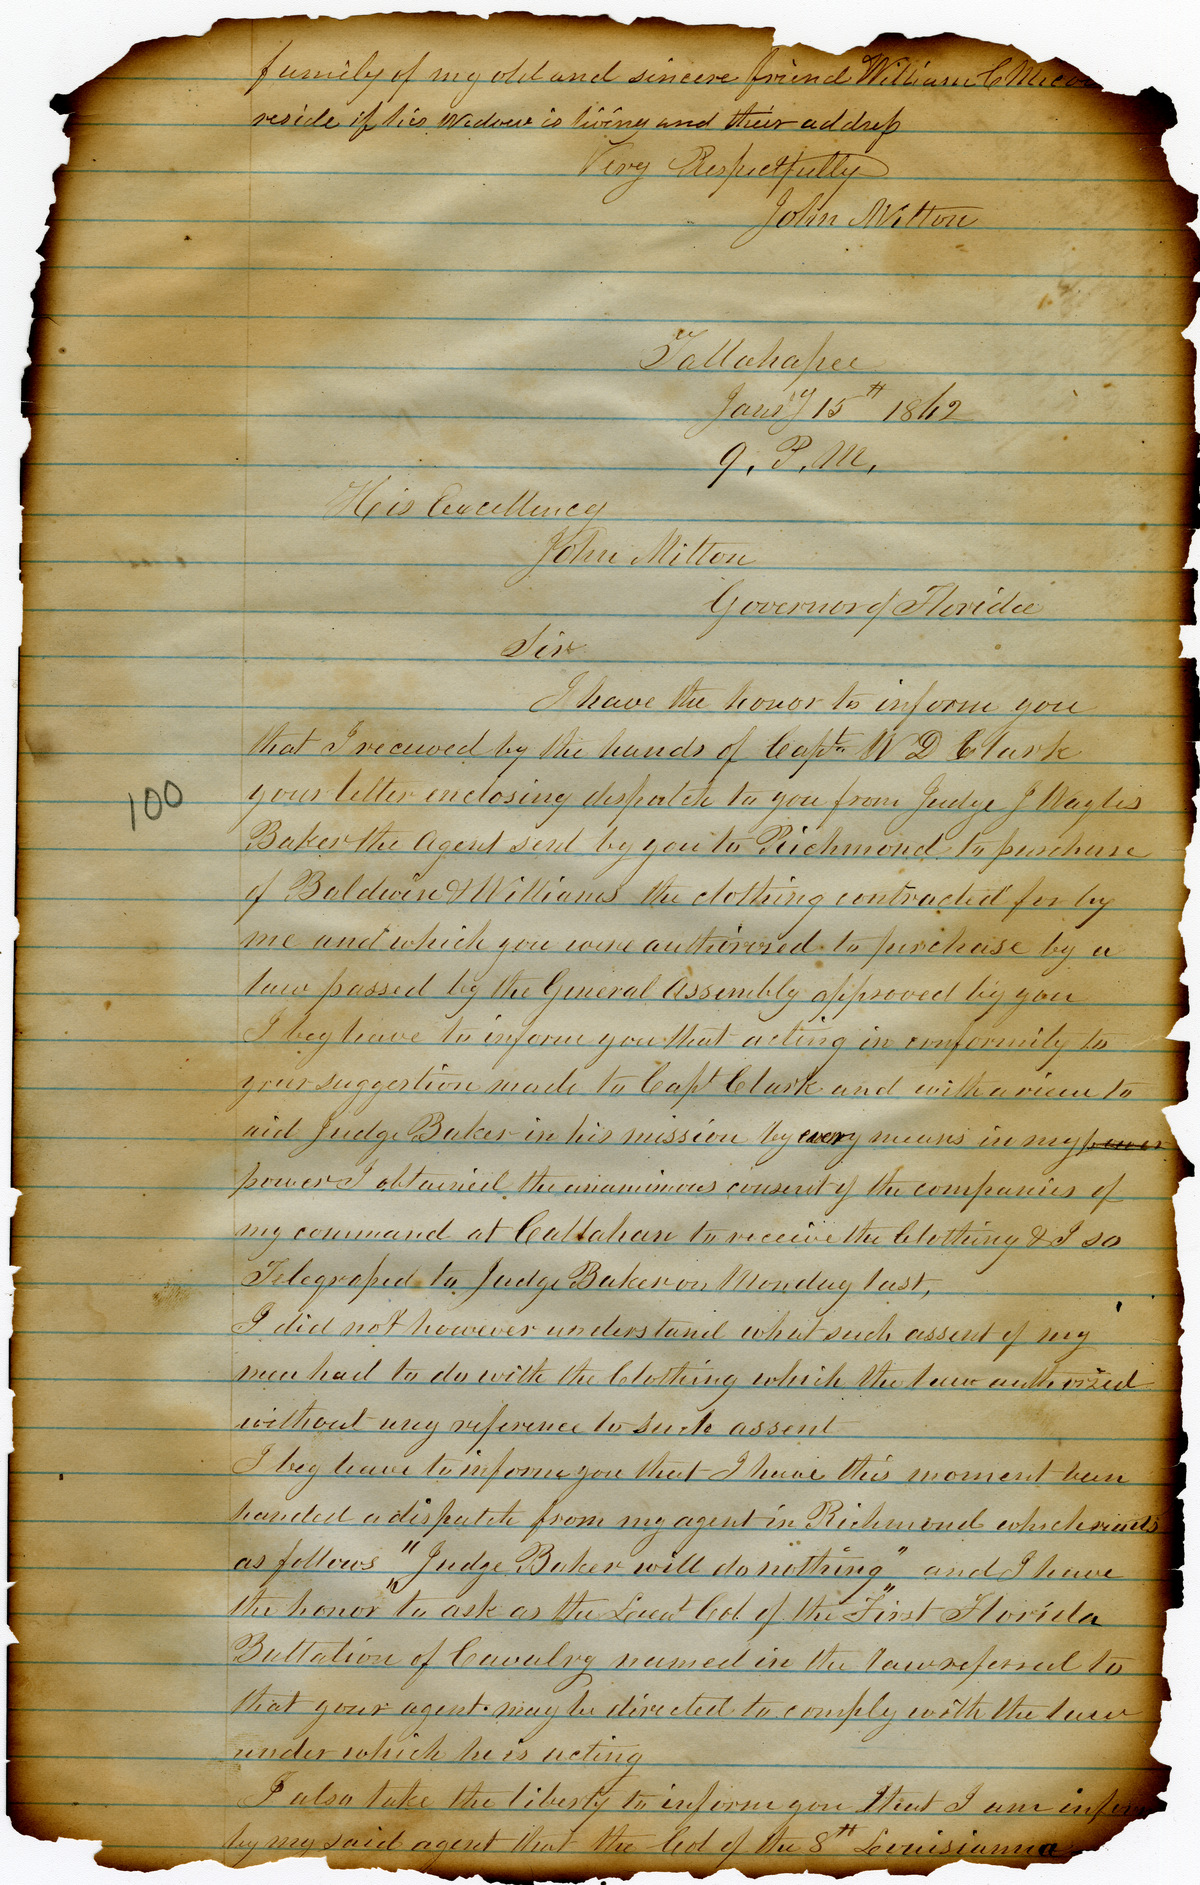 family of my old and sincere friend William C
reside if his Widow is living and their address
Very Respectfully
John Milton
Tallahassee
Jany 15th 1862
9. P. M,
His Excellency
John Milton
Governor of Florida
Sir
I have the honor to inform you
that I received by the hands of Capt W D Clark
your letter enclosing despatch to you from Judge J Wayles
Baker the Agent sent by you to Richmond to purchase
of Baldwin & Williams the clothing contracted for by
me and which you were authorized to purchase by a
law passed by the General Assembly approved by you
I beg leave to inform you that acting in conformity to
your suggestion made to Capt Clark and with a view to
aid Judge Baker in his mission by every means in my power
power I obtained the unanimous consent of the companies of
my command at Callahan to receive the Clothing & I so
Telegraped to Judge Baker on Monday last,
I did not however understand what such assent of my
men had to do with the Clothing which the law authorized
without any reference to such assent
I beg leave to inform you that I have this moment been
handed a dispatch from my agent in Richmond which reads
as follows "Judge Baker will do nothing" and I have
the honor "to ask as the Lieut Col. of the "First Florida
Battalion of Cavalry named in the law referred to
that your agent may be directed to comply with the law
under which he is acting
I also take the liberty to inform you that I am
by my said agent that the Col of the 8th Louisianna
100